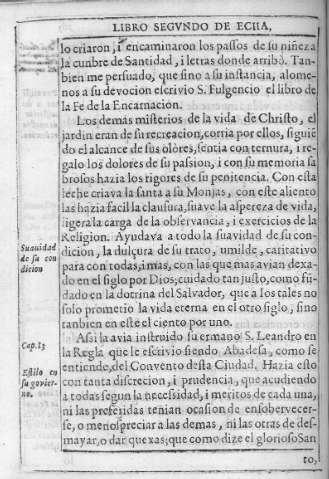 LIBRO SEGVNDO DE ECIIA,
lo criaron, i encaminaron los passos de su niñez a
la cunbre de Santidad, i letras donde arribò. Tan-
bien me persuado, que sino a su instancia, alome-
nos a su devocion escrivio S. Fulgencio el libro de
la Fe de la Encarnacion.
Los demàs misterios de la vida de Christo, el
jardin eran de su recreacion, corria por ellos, siguiē
do el alcance de sus olòres, sentia con ternura, i re-
galo los dolores de su passion, i con su memoria sa
brosos hazia los rigores de su penitencia. Con esta
leche criava la santa a su Monjas, con este aliento
las hazia facil la clausura, suave la aspereza de vida,
ligera la carga de la observancia, i exercicios de la
Religion. Ayudava a todo la suavidad de su con-
dicion, la dulçura de su trato, umilde, caritativo
para con todas, i mas, con las que mas avian dexa-
do en el siglo por Dios; cuidado tan justo, como fū-
dado en la dotrina del Salvador, que a los tales no
solo prometio la vida eterna en el otro siglo, sino
tanbien en este el ciento por uno.
Assi la avia instruido su ermano S. Leandro en
la Regla que le escrivio siendo Abadesa, como se
entiende, del Convento desta Ciudad. Hazia esto
con tanta discrecion, i prudencia, que acudiendo
a todas segun la necessidad, i meritos de cada una,
ni las preferidas tenian ocasion de ensobervecer-
se, o menospreciar a las demas, ni las otras de des-
mayar, o dar quexas; que como dize el glorioso San
to,
Suauidad
de su con
dicion
Cap. 13
Estilo en
su govier-
no.